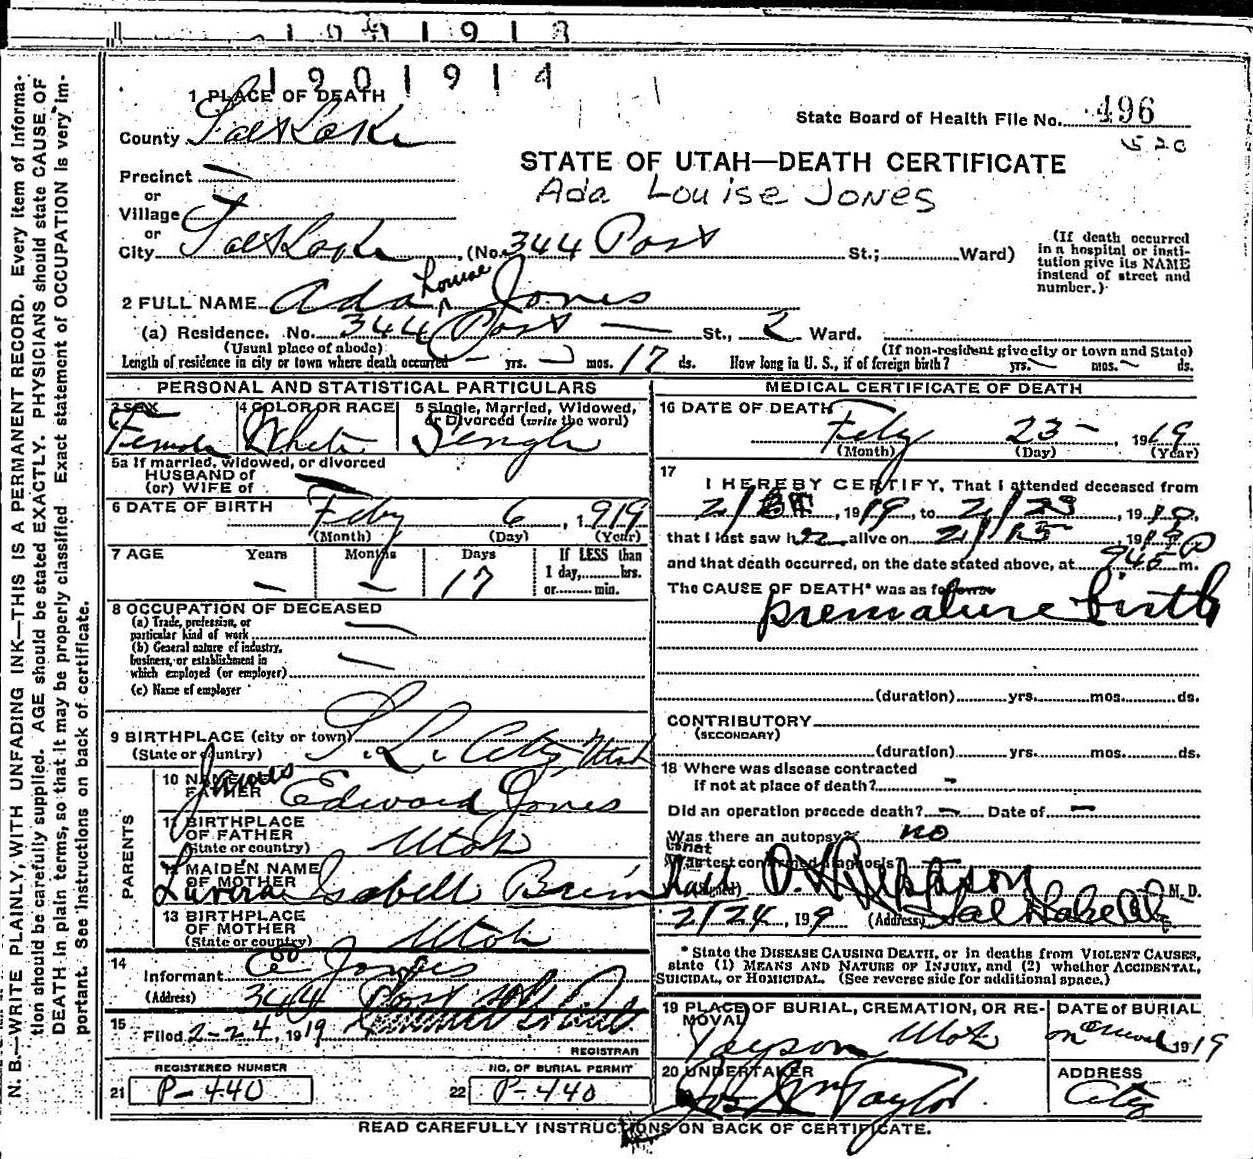 1901914
1 PLACE OF DEATH
State Board of Health File No. 496
County Salt Lake
520
STATE OF UTAH—DEATH CERTIFICATE
Precinct
or
Ada Louise Jones
Village
or
City Salt Lake (No. 344 Post St.; Ward)
(If death occurred in a hospital or institution give its NAME instead of street and number.)
2 FULL NAME Ada Louise Jones
(a) Residence. No. 344 Post St., 2 Ward.
(Usual place of abode) (If non-resident give city or town and State)
Length of residence in city or town where death occurred yrs. mos. 17 ds. How long in U. S., if of foreign birth? yrs. mos. ds.
PERSONAL AND STATISTICAL PARTICULARS
3 SEX Female
4 COLOR OR RACE White
5 Single, Married, Widowed, or Divorced (write the word) Single
5a If married, widowed, or divorced
HUSBAND of
(or) WIFE of
6 DATE OF BIRTH Feby 6, 1919
(Month) (Day) (Year)
7 AGE Years Months Days If LESS than
1 day,........hrs.
or........min.
— — 17
8 OCCUPATION OF DECEASED
(a) Trade, profession, or
particular kind of work
(b) General nature of industry,
business, or establishment in
which employed (or employer)
(c) Name of employer
9 BIRTHPLACE (city or town) S. L. City Utah
(State or country)
PARENTS
10 NAME OF FATHER James Edward Jones
11 BIRTHPLACE
OF FATHER
(State or country) Utah
12 MAIDEN NAME
OF MOTHER Isabell Brimhall
13 BIRTHPLACE
OF MOTHER
(State or country) Utah
14
Informant Jones
(Address) 344 Post
15
Filed 2-24, 1919
REGISTRAR
REGISTERED NUMBER
21 P-440
NO. OF BURIAL PERMIT
22 P-440
MEDICAL CERTIFICATE OF DEATH
16 DATE OF DEATH
Feby 23, 1919
(Month) (Day) (Year)
17
I HEREBY CERTIFY, That I attended deceased from
2/ , 1919, to 2/23, 19
that I last saw her alive on 2/ , 19
and that death occurred, on the date stated above, at 945 P m.
The CAUSE OF DEATH* was as follows
premature birth
(duration) yrs. mos. ds.
CONTRIBUTORY
(SECONDARY)
(duration) yrs. mos. ds.
18 Where was disease contracted
if not at place of death? —
Did an operation precede death? — Date of —
Was there an autopsy? no
What test confirmed diagnosis
(Signed) M. D.
2/24, 199 (Address) Salt Lake City
*State the DISEASE CAUSING DEATH, or in deaths from VIOLENT CAUSES,
state (1) MEANS AND NATURE OF INJURY, and (2) whether ACCIDENTAL,
SUICIDAL, or HOMICIDAL. (See reverse side for additional space.)
19 PLACE OF BURIAL, CREMATION, OR RE-
MOVAL
Payson Utah
DATE of BURIAL
1919
20 UNDERTAKER
Taylor
ADDRESS
City
READ CAREFULLY INSTRUCTIONS ON BACK OF CERTIFICATE.
N. B.—WRITE PLAINLY, WITH UNFADING INK—THIS IS A PERMANENT RECORD. Every item of informa-
tion should be carefully supplied. AGE should be stated EXACTLY. PHYSICIANS should state CAUSE OF
DEATH in plain terms, so that it may be properly classified. Exact statement of OCCUPATION is very im-
portant. See Instructions on back of certificate.